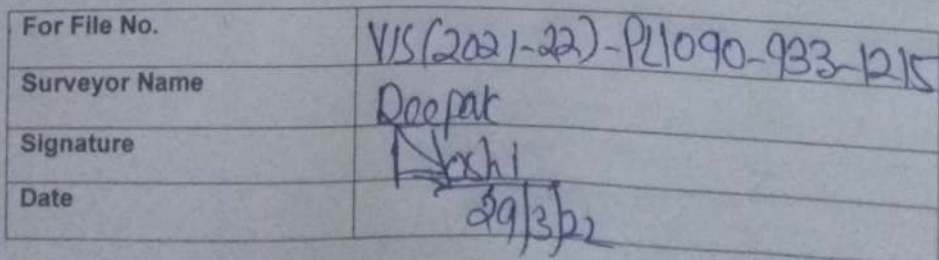 For File No. VIS(2021-22)-PL1090-933-1215
Surveyor Name Deepak
Signature
Date 29/3/22